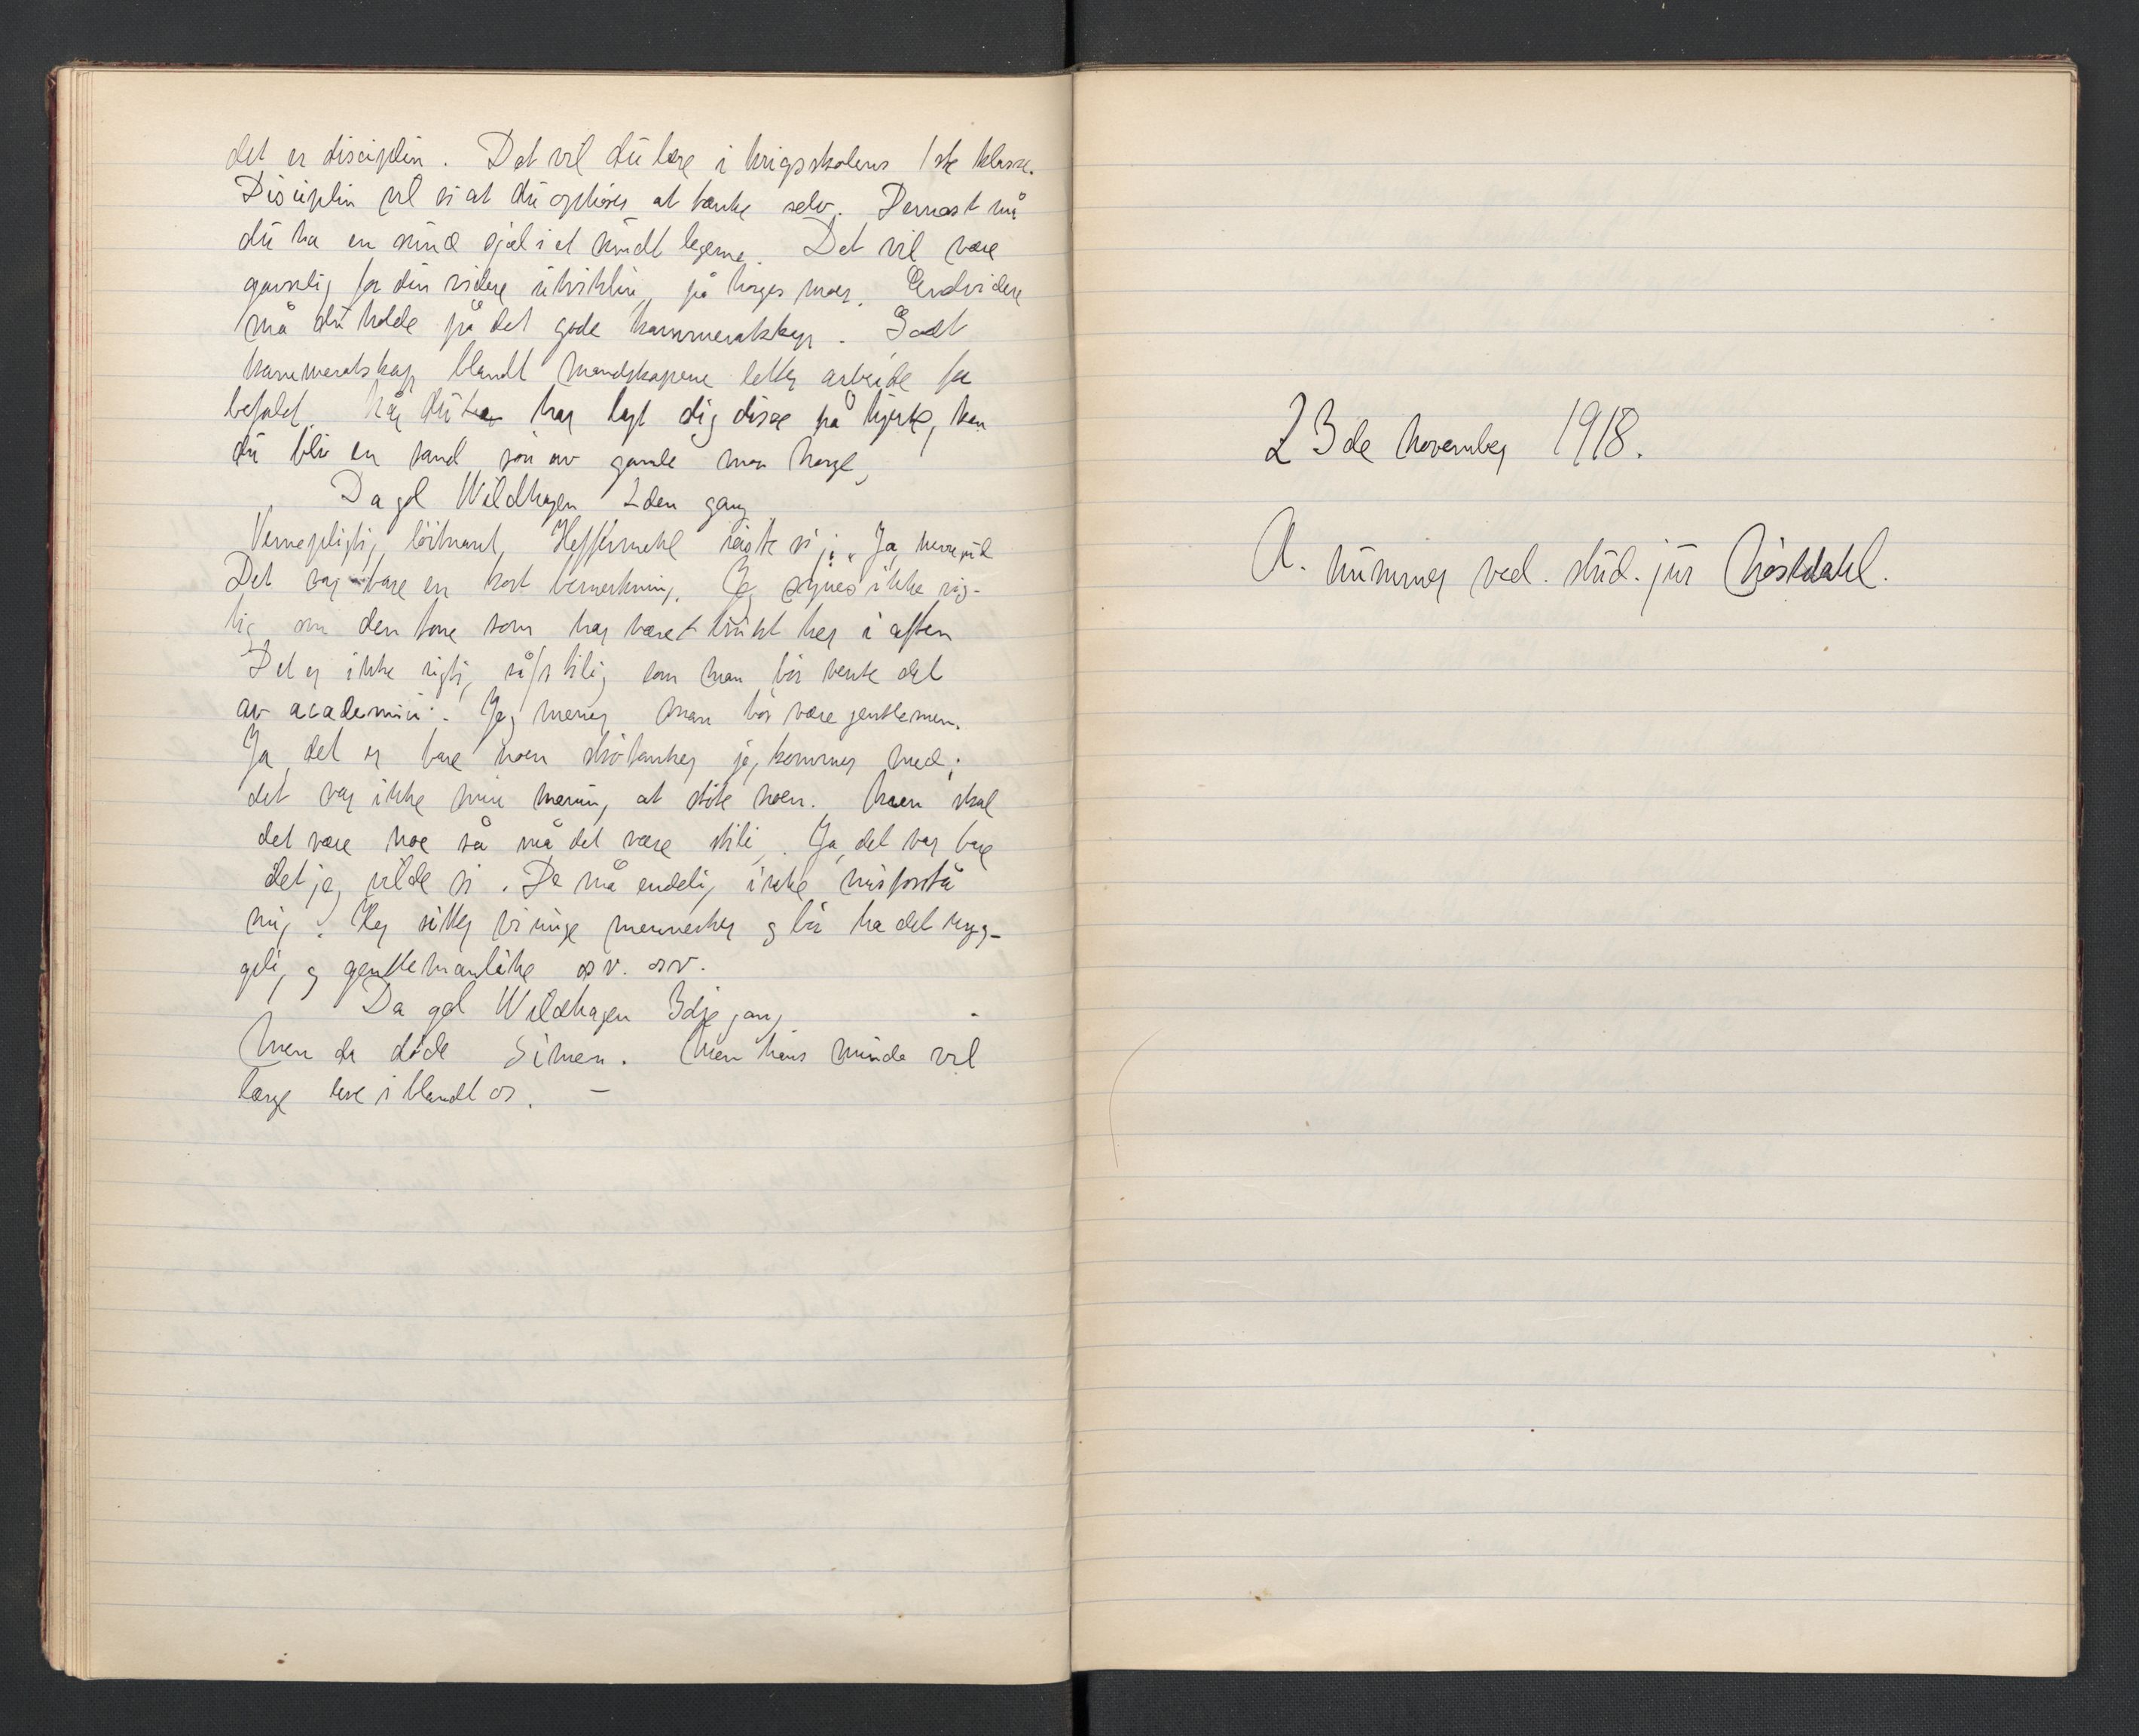 det er disciplin. Det vil du lære i krigsskolens 1ste klasse.
Disciplin vil si at du ophører at tænke selv. Dernæst må
du ha en sund sjæl i et sundt legeme. Det vil være
gavnlig for din videre utvikling på Norges moer. Endvidere
må du holde på det gode kammeratskap. Godt
kammeratskap blandt mandskapene letter arbeide for
befalet. Når du har lagt dig disse på hjerte, kan
du bli en sand søn av gamle mor Norge,
Da gol Wildhagen 2den gang
Vernepligtig løitnant, Heffermehl reiste sig: "Ja,
Det var bare en kort bemerkning. Jeg synes ikke rig-
tig om den tone som har været brukt her i aften
Det er ikke rigtig så stilig som man bør vente det
av academici. Jeg mener man bør være gentlemen.
Ja, det er bare noen strøtanker jeg kommer med;
det var ikke min mening at støte noen. Men skal
det være noe så må det være stilig. Ja, det var bare
det jeg vilde si. De må endelig ikke misforstå
mig. Her sitter vi unge mennesker og bør ha det hyg-
gelig og gentlemanlike osv. osv.
Da gol Wildhagen 3dje gang
Men da døde Simen. Men hans minde vil
længe leve iblandt os. —
23de November 1918.
A. nummer ved. stud. jur Høstdahl.